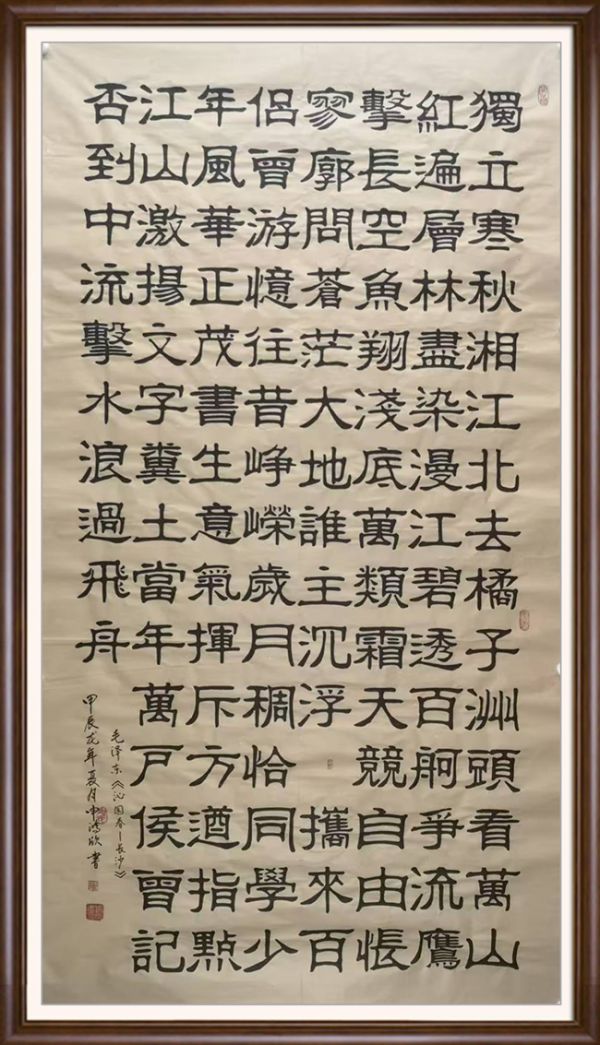 獨立寒秋湘江北去橘子洲頭看萬山
紅遍層林盡染漫江碧透百舸爭流鷹
擊長空魚翔淺底萬類霜天競自由悵
寥廓問蒼茫大地誰主沉浮 攜來百
侶曾游憶往昔崢嶸歲月稠恰同學少
年風華正茂書生意氣揮斥方遒指點
江山激揚文字糞土當年萬戶侯曾記
否到中流擊水浪過飛舟
毛泽东《沁园春—長沙》
甲辰龙年夏月 書